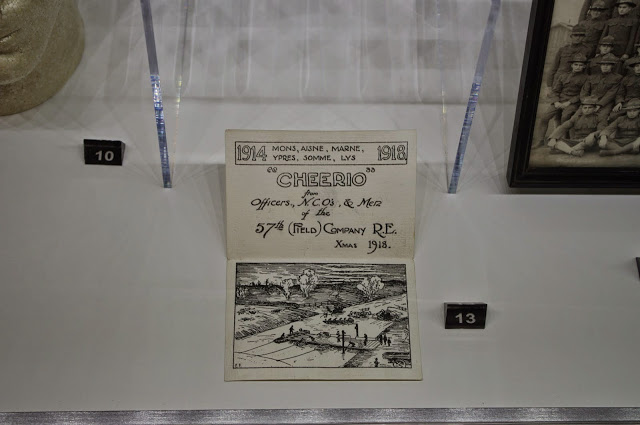 10
1914 MONS, AISNE, MARNE, 1918.
YPRES, SOMME, LYS
"CHEERIO"
from
Officers., N.C.O's, & Men
of the
57th (FIELD) COMPANY R.E.
XMAS 1918.
13